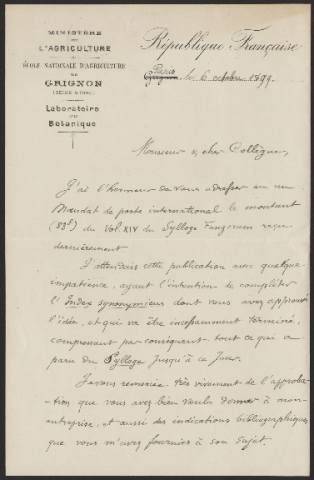 MINISTÈRE
DE
L'AGRICULTURE
ÉCOLE NATIONALE D'AGRICULTURE
DE
GRIGNON
(SEINE & OISE)
Laboratoire
DE
Botanique
République Française
Paris
Grignon le 6 octobre 1899.
Monsieur & cher Collègue,
J'ai l'honneur de vous adresser en un
Mandat de poste international le montant
(83f) du Vol. XIV du Sylloge Fungorum reçu
dernièrement.
J'attendais cette publication avec quelque
impatience, ayant l'intention de compléter
l'Index synonymicus dont vous avez approuvé
l'idée, et qui va être incessamment terminé,
comprenant par conséquent tout ce qui a
paru du Sylloge jusqu'à ce jour.
Je vous remercie très vivement de l'approba-
tion que vous avez bien voulu donner à mon
entreprise, et aussi des indications bibliographiques
que vous m'avez fournies à son sujet.